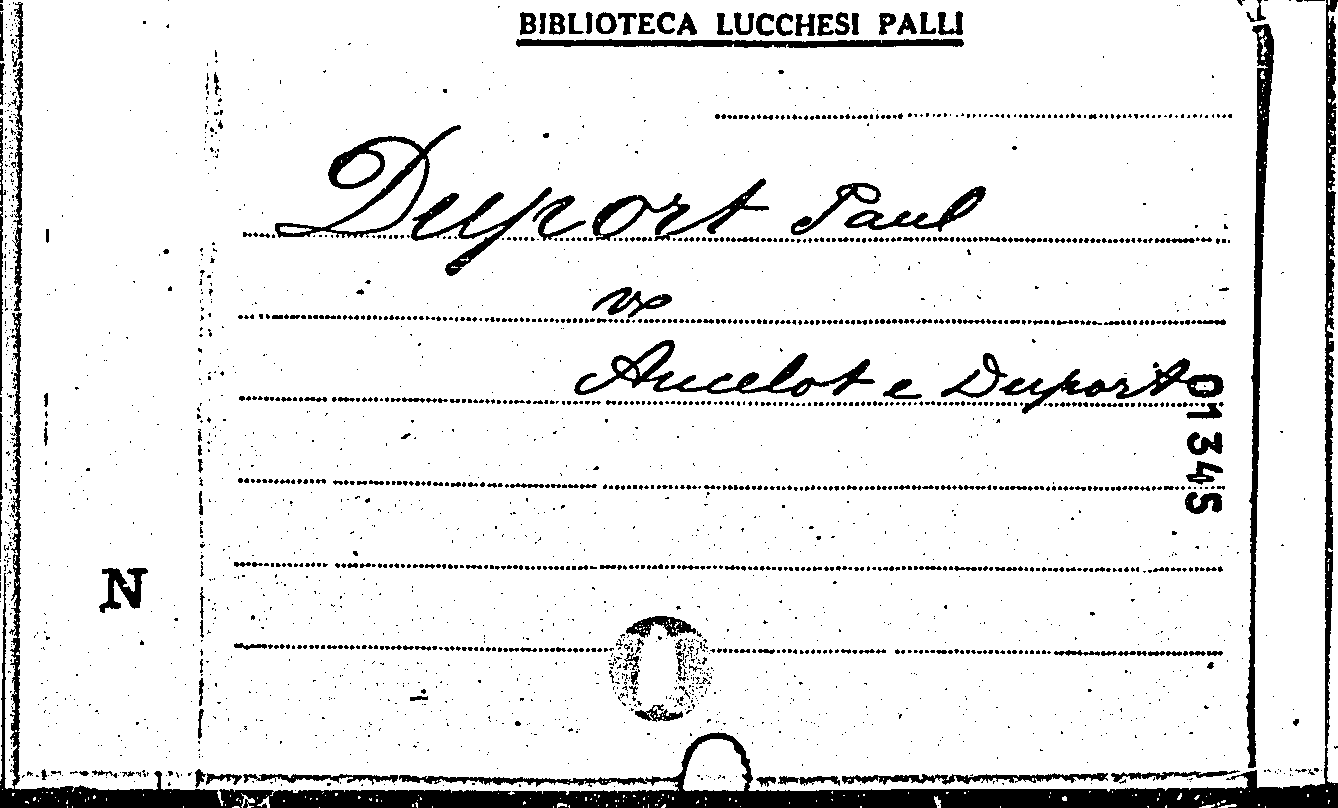 BIBLIOTECA LUCCHESI PALLI
Duport Paul
Ancelot e Duport
01345
N